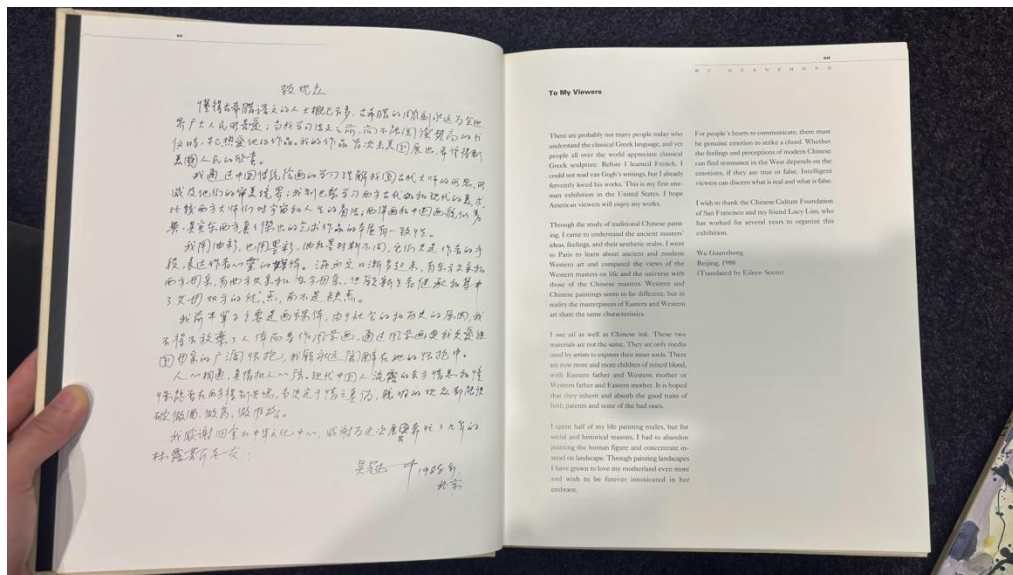 致观众
懂得古希腊语文的人大概已不多,古希腊的雕刻永远为全世
界广大人民所喜爱;当我学习法文之前,尚不能阅读梵高的书
信时,却已热爱他的作品。我的作品首次去美国展出,希望得到
美国人民的
我通过中国传统绘画的学习理解我国古代大师的思想、
感及他们的审美境界;我到巴黎学习西方古代的和现代的美术,
比较西方大师们对宇宙和人生的看法;西洋画和中国画貌似
异,其实东西方真正杰出的艺术作品的本质有一致性。
我用油彩,也用墨彩,油和墨材料不同,它们只是作者的手
段,表达作者心灵的媒体。混血儿日渐多起来,有东方父亲和
西方母亲,有西方父亲和东方母亲,但愿新生者继承和集中
了父母双方的优点,而不是缺点。
我前半辈子主要是画裸体,由于社会的和历史的原因,我
不得不放弃了人体而专作风景画,通过风景画更我爱祖
国母亲的广阔怀抱,我愿永远陶醉在她的怀抱中。
人心相通,真情扣人心弦。现代中国人流露的亲手情思和
能否在西方得到共鸣,当决定于情之真伪,聪明的观众都能识
破
我感谢旧金山中华文化中心,感谢为这次展览奔忙了几年的
林露斯
吴冠中 1988年
北京
WU GUANZHONG
To My Viewers
There are probably not many people today who
understand the classical Greek language, and yet
people all over the world appreciate classical
Greek sculpture. Before I learned French, I
could not read van Gogh's writings, but I already
fervently loved his works. This is my first one-
man exhibition in the United States. I hope
American viewers will enjoy my works.
Through the study of traditional Chinese paint-
ing, I came to understand the ancient masters'
ideas, feelings, and their aesthetic realm. I went
to Paris to learn about ancient and modern
Western art and compared the views of the
Western masters on life and the universe with
those of the Chinese masters. Western and
Chinese paintings seem to be different, but in
reality the masterpieces of Eastern and Western
art share the same characteristics.
I use oil as well as Chinese ink. These two
materials are not the same. They are only media
used by artists to express their inner souls. There
are now more and more children of mixed blood,
with Eastern father and Western mother or
Western father and Eastern mother. It is hoped
that they inherit and absorb the good traits of
both parents and none of the bad ones.
I spent half of my life painting nudes, but for
social and historical reasons, I had to abandon
painting the human figure and concentrate in-
stead on landscape. Through painting landscapes
I have grown to love my motherland even more
and wish to be forever intoxicated in her
embrace.
For people's hearts to communicate, there must
be genuine emotion to strike a chord. Whether
the feelings and perceptions of modern Chinese
can find resonance in the West depends on the
emotions, if they are true or false. Intelligent
viewers can discern what is real and what is false.
I wish to thank the Chinese Culture Foundation
of San Francisco and my friend Lucy Lim, who
has worked for several years to organize this
exhibition.
Wu Guanzhong
Beijing, 1988
(Translated by Eileen Seeto)